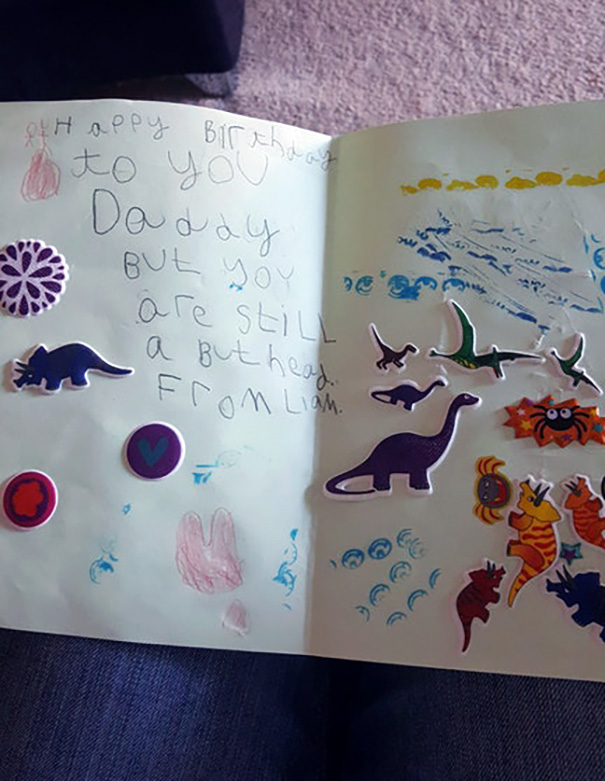 Happy Birthday
to you
Daddy
BUt you
are stiLL
a Buthead.
FRom Liam.